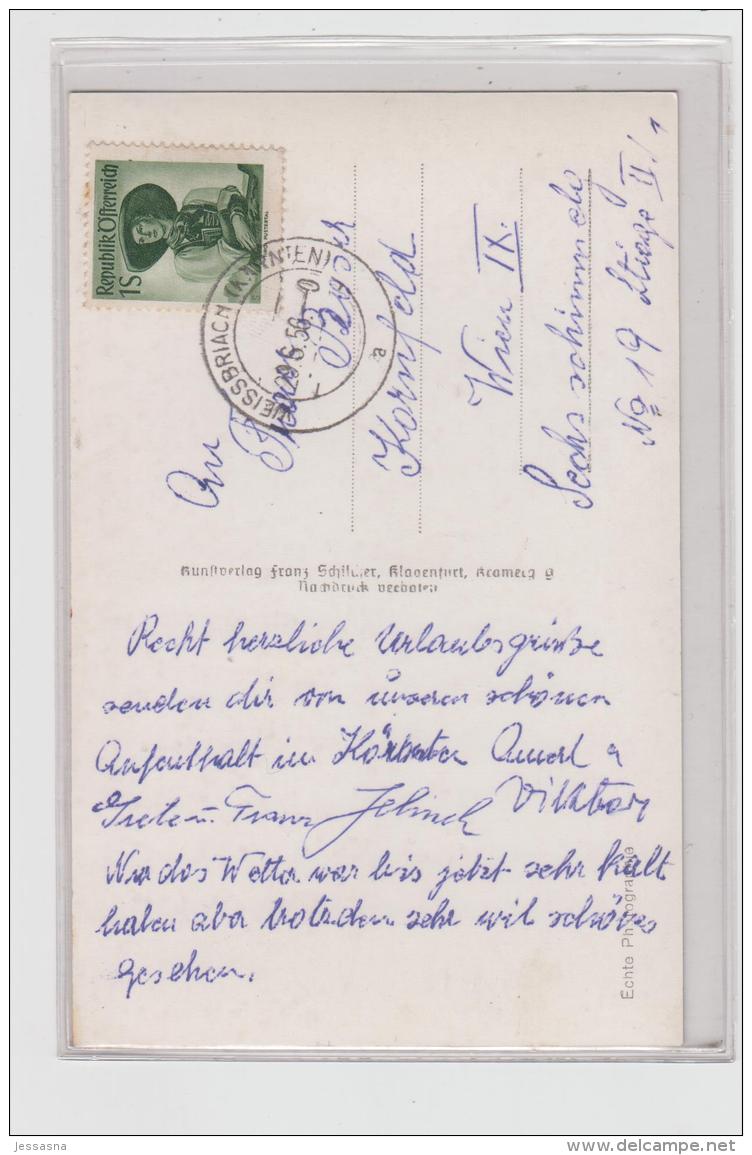 Republik Österreich
1S
PUSTERTAL
WEISSBRIACH (KÄRNTEN)
29.6.56
a
An
Frau
Kornfeld
Wien IX.
Sechsschimmelg
No 19 Stiege II/1
Kunstverlag Franz Schilcher, Klagenfurt,
Nachdruck verboten
Recht herzliche Urlaubsgrüße
senden dir von unseren schönen
Aufenthalt in Kärnten
u Franz Viktor
Nur das Wetter war bis jetzt sehr kalt
haben aber trotzdem sehr viel schönes
gesehen.
Echte Photographie
jessasna
www.delcampe.net